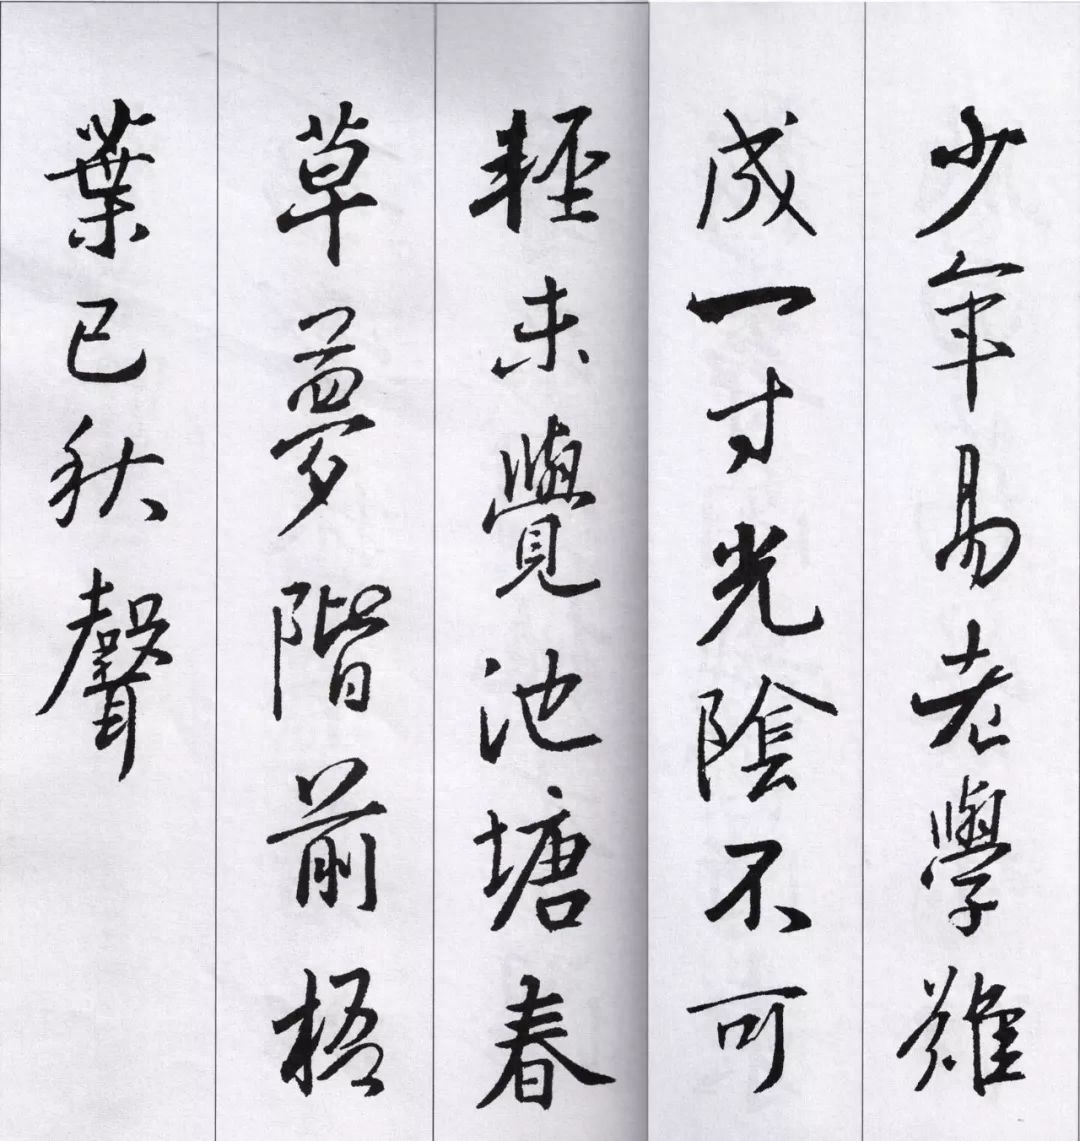 少年易老學難
成一寸光陰不可
輕未覺池塘春
草夢階前梧
葉已秋聲